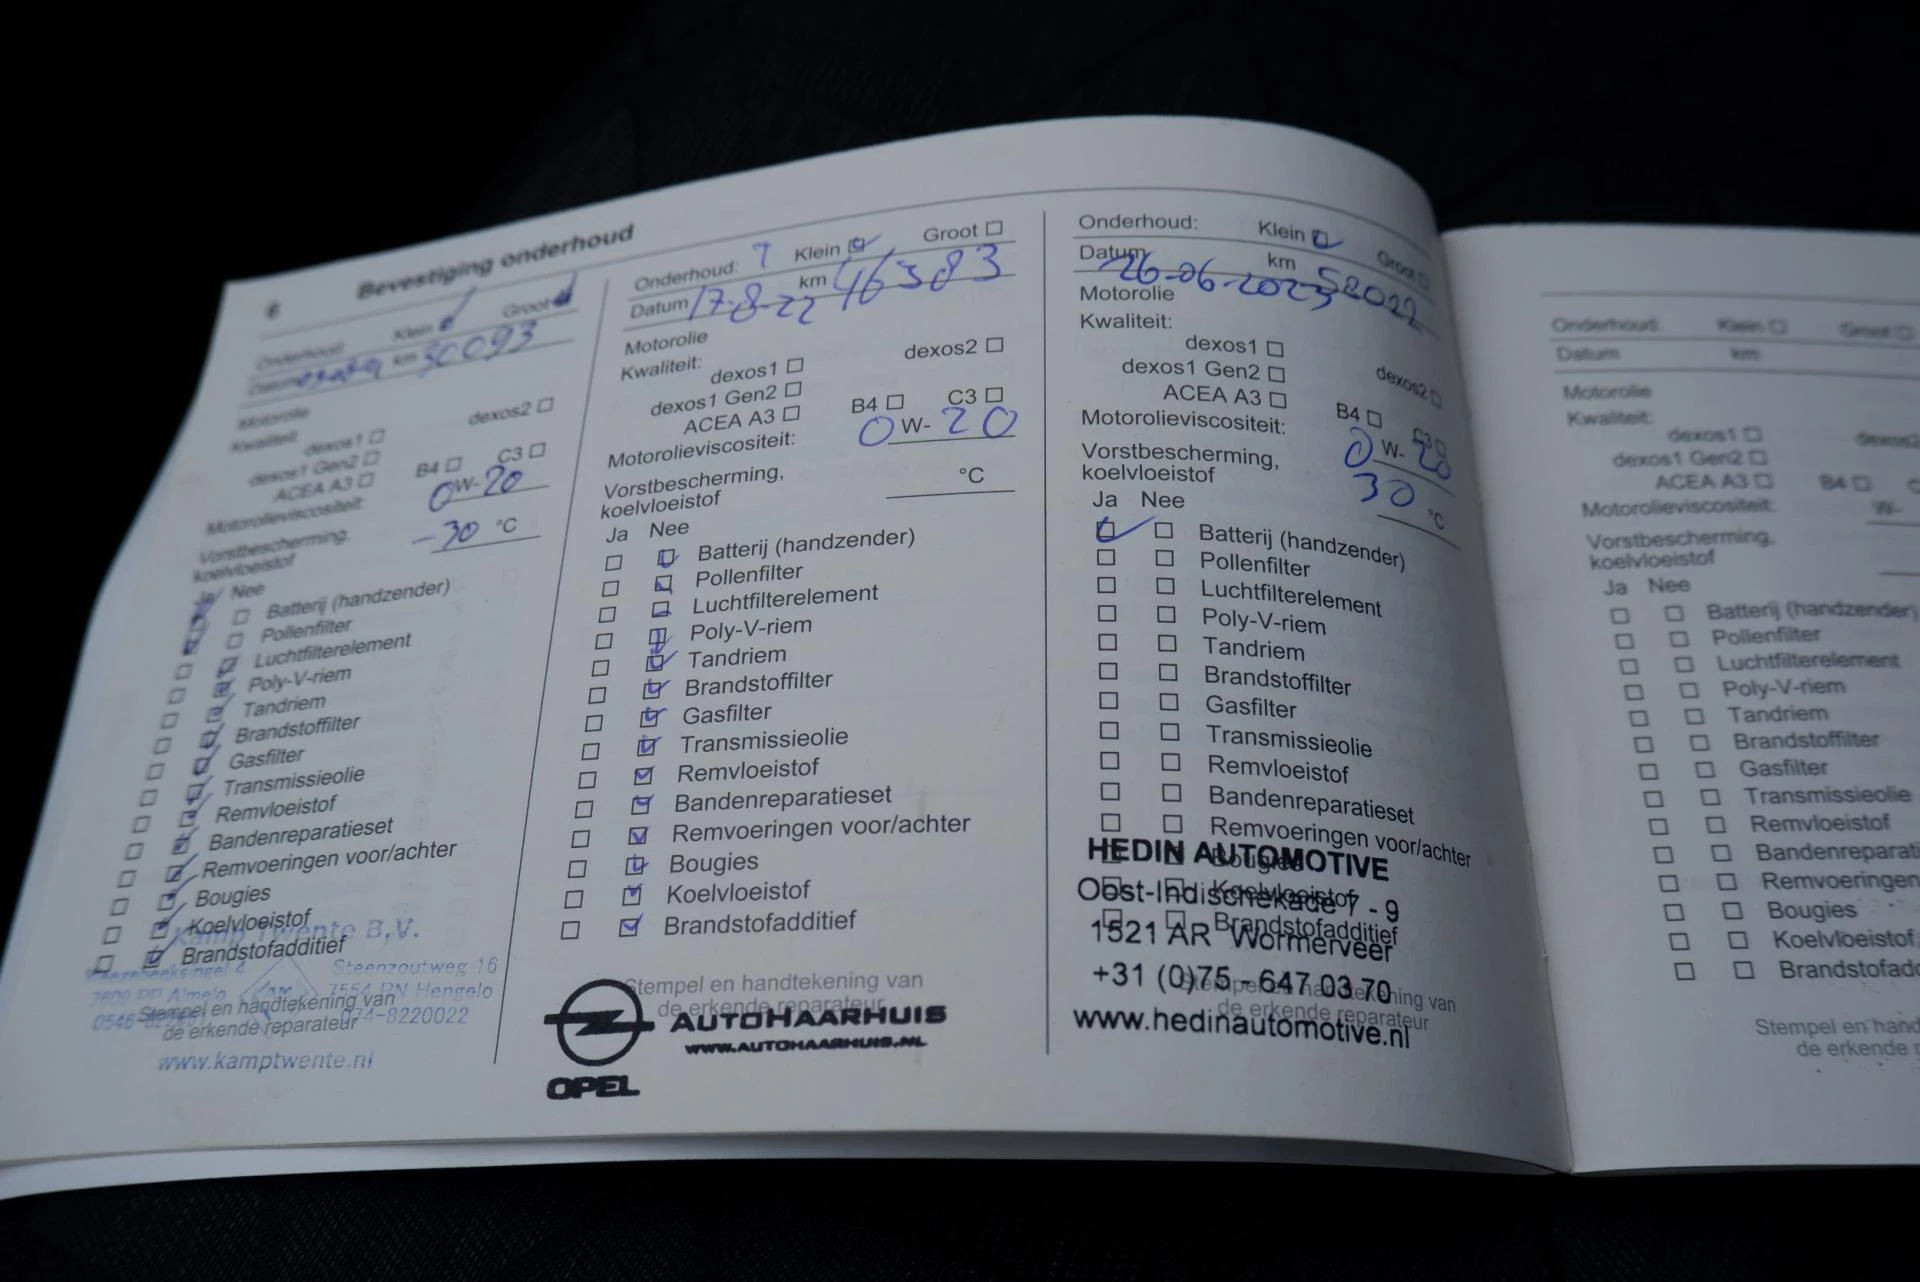 6 Bevestiging onderhoud
Onderhoud: Klein Groot
Datum km 30093
Motorolie
Kwaliteit:
dexos1 dexos2
dexos1 Gen2
ACEA A3 B4 C3
Motorolieviscositeit: 0 W- 20
Vorstbescherming,
koelvloeistof -30 °C
Ja Nee
Batterij (handzender)
Pollenfilter
Luchtfilterelement
Poly-V-riem
Tandriem
Brandstoffilter
Gasfilter
Transmissieolie
Remvloeistof
Bandenreparatieset
Remvoeringen voor/achter
Bougies
Koelvloeistof
Brandstofadditief
Kamp Twente B.V.
Steenzoutweg 16
7609 PP Almelo 7554 PN Hengelo
074-8220022
Stempel en handtekening van
de erkende reparateur
www.kamptwente.nl
Onderhoud: 7 Klein Groot
Datum 17-8-22 km 46383
Motorolie
Kwaliteit:
dexos1 dexos2
dexos1 Gen2
ACEA A3 B4 C3
Motorolieviscositeit: 0 W- 20
Vorstbescherming,
koelvloeistof °C
Ja Nee
Batterij (handzender)
Pollenfilter
Luchtfilterelement
Poly-V-riem
Tandriem
Brandstoffilter
Gasfilter
Transmissieolie
Remvloeistof
Bandenreparatieset
Remvoeringen voor/achter
Bougies
Koelvloeistof
Brandstofadditief
Stempel en handtekening van
de erkende reparateur
AUTOHAARHUIS
WWW.AUTOHAARHUIS.NL
OPEL
Onderhoud: Klein Groot
Datum 26-06-2023 km 52022
Motorolie
Kwaliteit:
dexos1 dexos2
dexos1 Gen2
ACEA A3 B4 C3
Motorolieviscositeit: 0 W- 20
Vorstbescherming,
koelvloeistof 30 °C
Ja Nee
Batterij (handzender)
Pollenfilter
Luchtfilterelement
Poly-V-riem
Tandriem
Brandstoffilter
Gasfilter
Transmissieolie
Remvloeistof
Bandenreparatieset
Remvoeringen voor/achter
Bougies
Koelvloeistof
Brandstofadditief
HEDIN AUTOMOTIVE
Oost-Indischekade 7 - 9
1521 AR Wormerveer
+31 (0)75 - 647 03 70
www.hedinautomotive.nl
Stempel en handtekening van
de erkende reparateur
Onderhoud: Klein Groot
Datum km
Motorolie
Kwaliteit:
dexos1
dexos1 Gen2
ACEA A3 B4
Motorolieviscositeit: W-
Vorstbescherming,
koelvloeistof
Ja Nee
Batterij (handzender)
Pollenfilter
Luchtfilterelement
Poly-V-riem
Tandriem
Brandstoffilter
Gasfilter
Transmissieolie
Remvloeistof
Bandenreparati
Remvoeringen
Bougies
Koelvloeistof
Brandstofadd
Stempel en hand
de erkende r